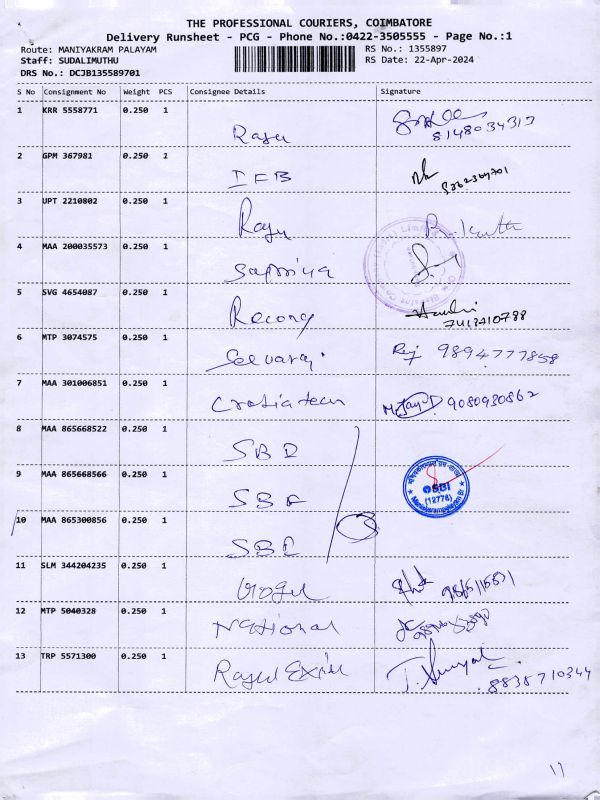 THE PROFESSIONAL COURIERS, COIMBATORE
Delivery Runsheet - PCG - Phone No.:0422-3505555 - Page No.:1
Route: MANIYAKRAM PALAYAM RS No.: 1355897
Staff: SUDALIMUTHU RS Date: 22-Apr-2024
DRS No.: DCJB135589701
S No Consignment No Weight PCS Consignee Details Signature
1 KRR 5558771 0.250 1
Raju 8148034313
2 GPM 367981 0.250 1
IFB
3 UPT 2210802 0.250 1
Raju
4 MAA 200035573 0.250 1
Sapriya
5 SVG 4654087 0.250 1
7418410788
6 MTP 3074575 0.250 1
Selvaraj 9894777858
7 MAA 301006851 0.250 1
9080930862
8 MAA 865668522 0.250 1
SBI
9 MAA 865668566 0.250 1
SBI
SBI
(12776)
10 MAA 865300856 0.250 1
SBI 3
11 SLM 344204235 0.250 1
12 MTP 5040328 0.250 1
National
13 TRP 5571300 0.250 1
8838710344
11